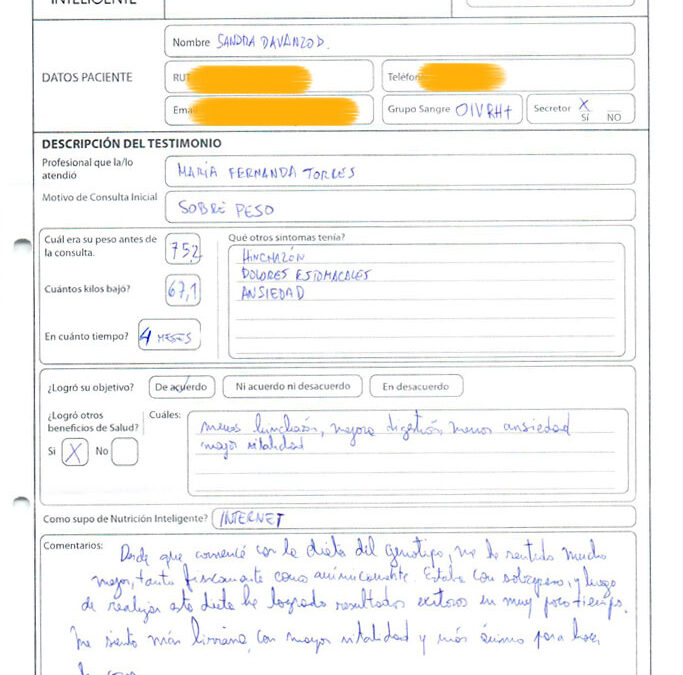 INTELIGENTE
Nombre SANDRA DAVANZO D.
DATOS PACIENTE
RUT
Teléfon
Ema
Grupo Sangre OIVRH+
Secretor X SÍ NO
DESCRIPCIÓN DEL TESTIMONIO
Profesional que la/lo atendió MARÍA FERNANDA TORRES
Motivo de Consulta Inicial SOBRE PESO
Cuál era su peso antes de la consulta. 75,2
Cuántos kilos bajó? 67,1
En cuánto tiempo? 4 MESES
Qué otros sintomas tenía?
HINCHAZÓN
DOLORES ESTOMACALES
ANSIEDAD
¿Logró su objetivo? De acuerdo Ni acuerdo ni desacuerdo En desacuerdo
¿Logró otros beneficios de Salud?
Si X No
Cuáles:
menos hinchazón, mejora digestión, menor ansiedad
mayor vitalidad
Como supo de Nutrición Inteligente? INTERNET
Comentarios:
Desde que comencé con la dieta del genotipo, me he sentido mucho
mejor, tanto físicamente como anímicamente. Estaba con sobrepeso, y luego
de realizar esta dieta he logrado resultados exitosos en muy poco tiempo.
Me siento más liviana, con mayor vitalidad y más ánimo para hacer